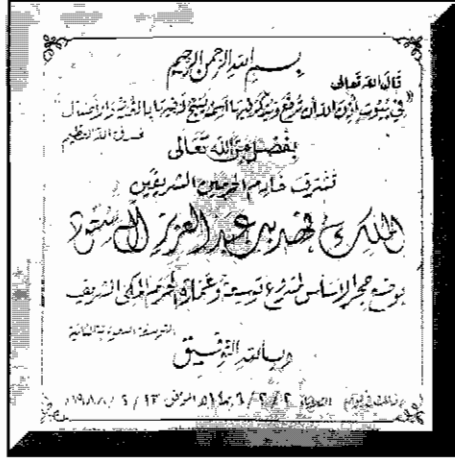 بسم الله الرحمن الرحيم
قال الله تعالى
في بيوت أذن الله أن ترفع ويذكر فيها اسمه يسبح له فيها بالغدو والآصال
صدق الله العظيم
بفضل من الله تعالى
تشرف خادم الحرمين الشريفين
الملك فهد بن عبد العزيز آل سعود
بوضع حجر الأساس لمشروع توسعة وعمارة الحرم المكي الشريف
التوسعة السعودية الثانية
وبالله التوفيق
وذلك في يوم الثلاثاء ٢ / ٢ / ١٤٠٩هـ الموافق ١٣ / ٩ / ١٩٨٨م